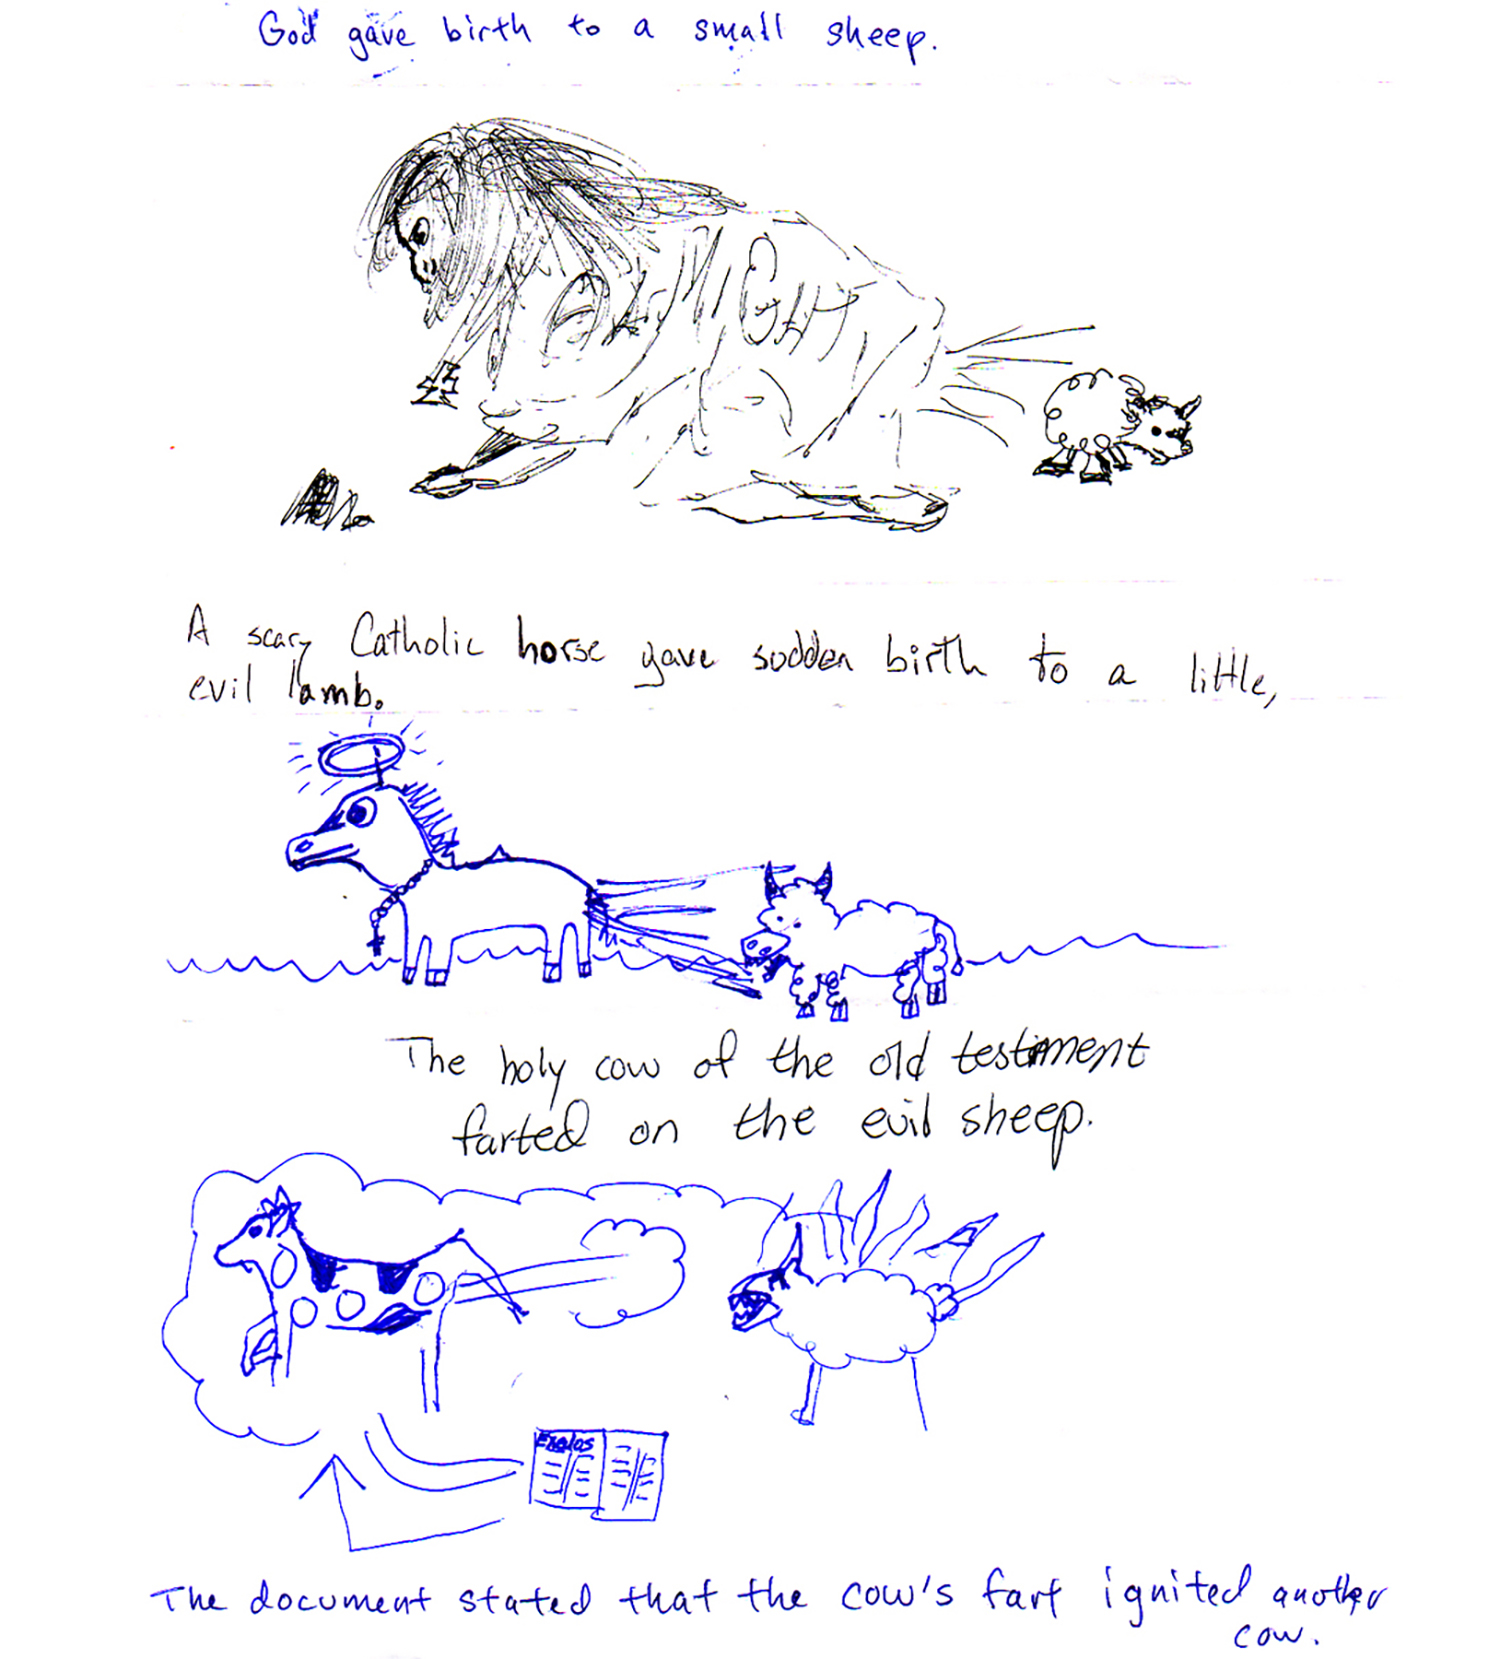 God gave birth to a small sheep.
ALMIGHTY
A scary Catholic horse gave sudden birth to a little,
evil lamb.
The holy cow of the old testament
farted on the evil sheep.
Exodos
The document stated that the cow's fart ignited another
cow.